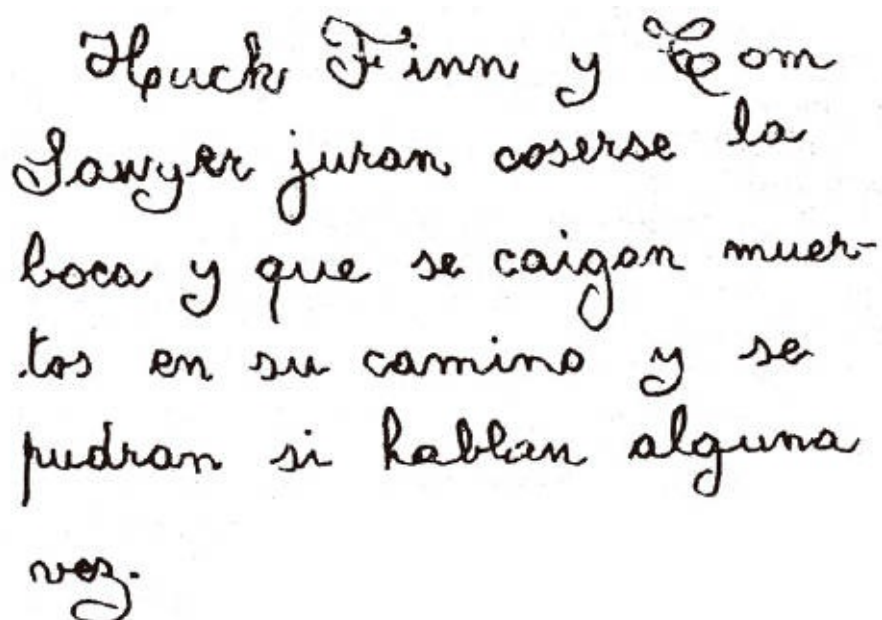 Huck Finn y Tom
Sawyer juran coserse la
boca y que se caigan muer-
tos en su camino y se
pudran si hablan alguna
vez.